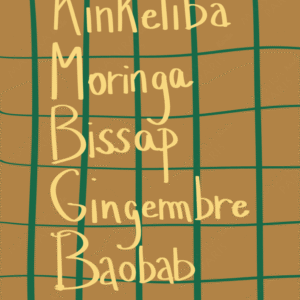 Kinkeliba
Moringa
Bissap
Gingembre
Baobab